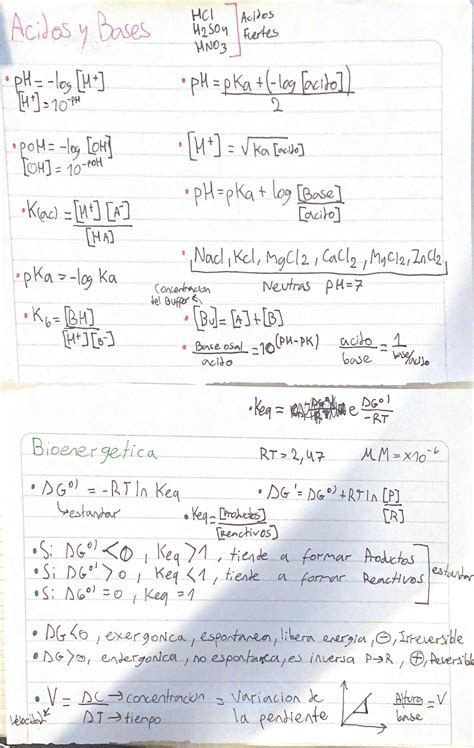 Acidos y Bases
HCl
H2SO4
HNO3
Acidos
Fuertes
• pH = -log [H+]
[H+] = 10^-pH
• pH = pKa + (-log [acido])
2
• pOH = -log [OH]
[OH] = 10^-pOH
• [H+] = √Ka [acido]
• pH = pKa + log [Base]
[acido]
• K(ac) = [H+] [A-]
[HA]
Nacl, Kcl, MgCl2, CaCl2, MgCl2, ZnCl2
Neutras pH=7
• pKa = -log Ka
Concentracion
del Buffer
• Kb = [BH]
[H+][B-]
• [Bu] = [A] + [B]
• Base o sal = 10^(PH-PK)
acido
acido = 1
base base/acido
• Keq = e DG°'
-RT
Bioenergetica
RT = 2,47
MM = x10^-6
• DG°' = -RT ln Keq
estandar
• DG' = DG°' + RT ln [P]
[R]
• Keq = [Productos]
[Reactivos]
• Si DG°' < 0, Keq > 1, tiende a formar Productos
• Si DG°' > 0, Keq < 1, tiende a formar Reactivos
• Si DG°' = 0, Keq = 1
estandar
• DG<0, exergonica, espontanea, libera energia, ⊖, Irreversible
• DG>0, endergonica, no espontanea, es inversa P→R, ⊕, Reversible
• V = DC → concentracion = Variacion de
DT → tiempo la pendiente
Velocidad
Altura = V
base